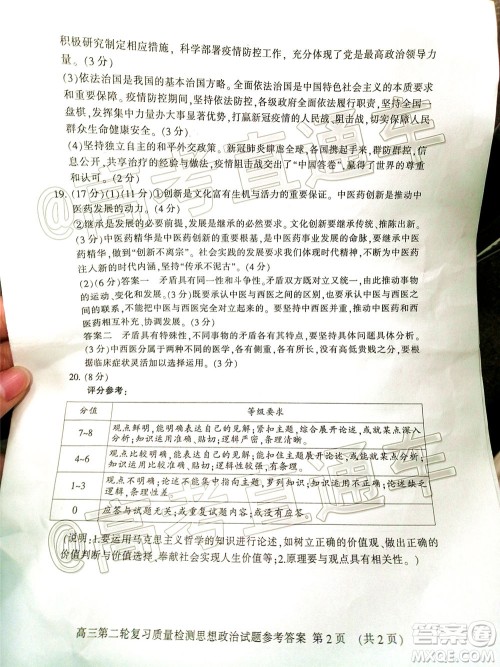 积极研究制定相应措施，科学部署疫情防控工作，充分体现了党是最高政治领导力
量。（3分）
（3）依法治国是我国的基本治国方略。依法治国是中国特色社会主义的本质要求
和重要保障。疫情防控期间，坚持依法防控，各国家机关依法履行职责，坚持全国一
盘棋，发挥集中力量办大事显著优势，打赢疫情防控的人民战、阻击战，切实保障人民
群众生命健康安全。（3分）
（4）坚持独立自主的和平外交政策。新冠肺炎肆虐全球，各国携起手来，群防群控，信
息公开，共享治疗的经验与方案，疫情阻击战交出了“中国答卷”，赢得了世界的尊重
和认可。（2分）
19.（17分）（1）（11分）①创新是文化富有生机与活力的重要保证。中医药创新是推动中
医药发展的动力。（4分）
②继承是发展的必要前提，发展是继承的必然要求。文化创新要继承传统，推陈出新。
中医药精华是中医药创新的重要根基，中医药事业的发展必须坚守其本质的命脉，做
到“创新不离宗”。社会实践的发展为文化创新，文化创新要体现时代精神，为中医药
注入新的时代内涵，坚持“传承不泥古”。（7分）
（2）（6分）答案一　矛盾具有同一性和斗争性。矛盾双方既对立又统一，由此推动事物
的运动、变化和发展。（3分）
药相互补充，协调发展。（3分）
答案二　矛盾具有特殊性，不同事物的矛盾各有其特点，要坚持具体问题具体分析。
（3分）中西医分属于两种不同的医学体系，各有所长，各有各的适用范围与对象，要根
据临床症状灵活加以选择运用。（3分）
20.（8分）
评分参考：
分值　等级要求
7~8　观点鲜明，能明确表达自己的见解；紧扣主题，综合展开论述，或就某点深入
分析；知识运用准确、贴切；逻辑严密，条理清晰。
4~6　观点比较明确，能表达自己的见解；能扣住主题展开论述；知识运用比较准确、
贴切；逻辑性较强，有条理。
1~3　观点不明确；论述不能集中指向主题，罗列知识；知识运用不正确；论述缺乏
逻辑，条理性差
0　应答与试题无关；或重复试题内容；或没有应答
（说明：主要运用马克思主义哲学的知识进行论述，如发挥意识的能动作用，做出正确的
价值判断与价值选择，奉献社会实现人生价值等；若用其他原理可酌情给分。）
高三第二轮复习质量检测思想政治试题参考答案　第2页　（共2页）
高考直通车